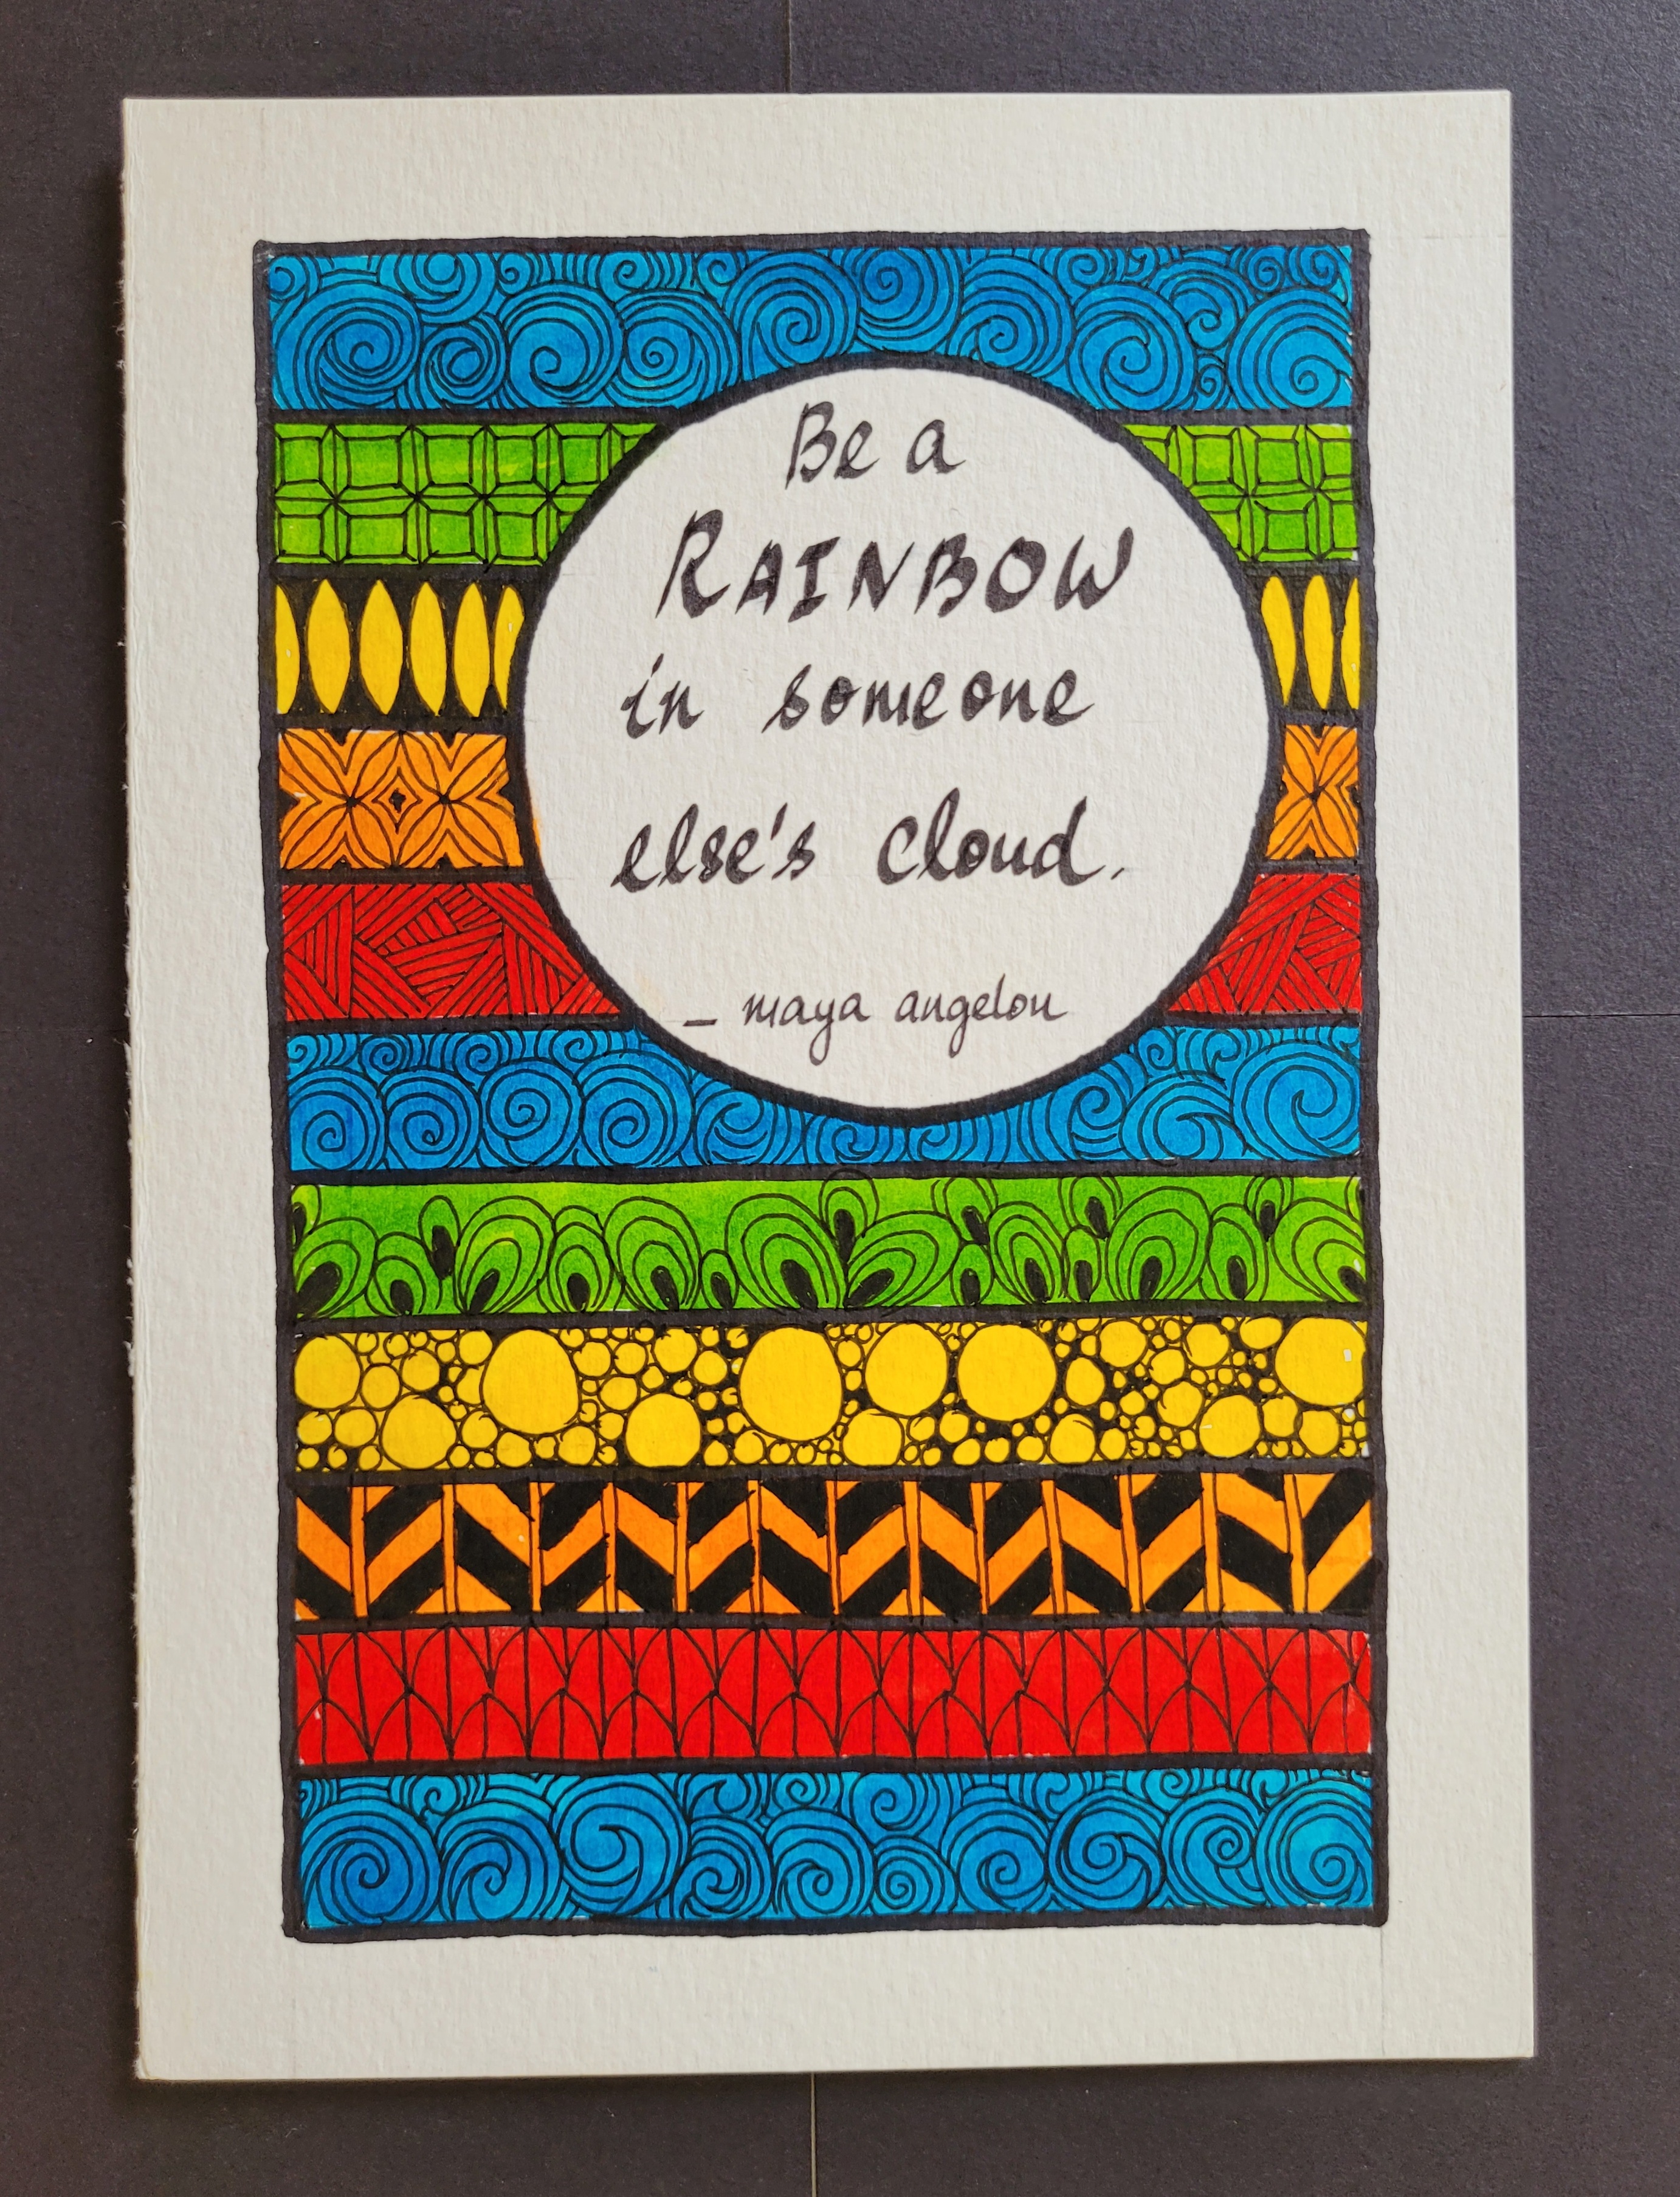 Be a
RAINBOW
in someone
else's cloud.
_ maya angelou